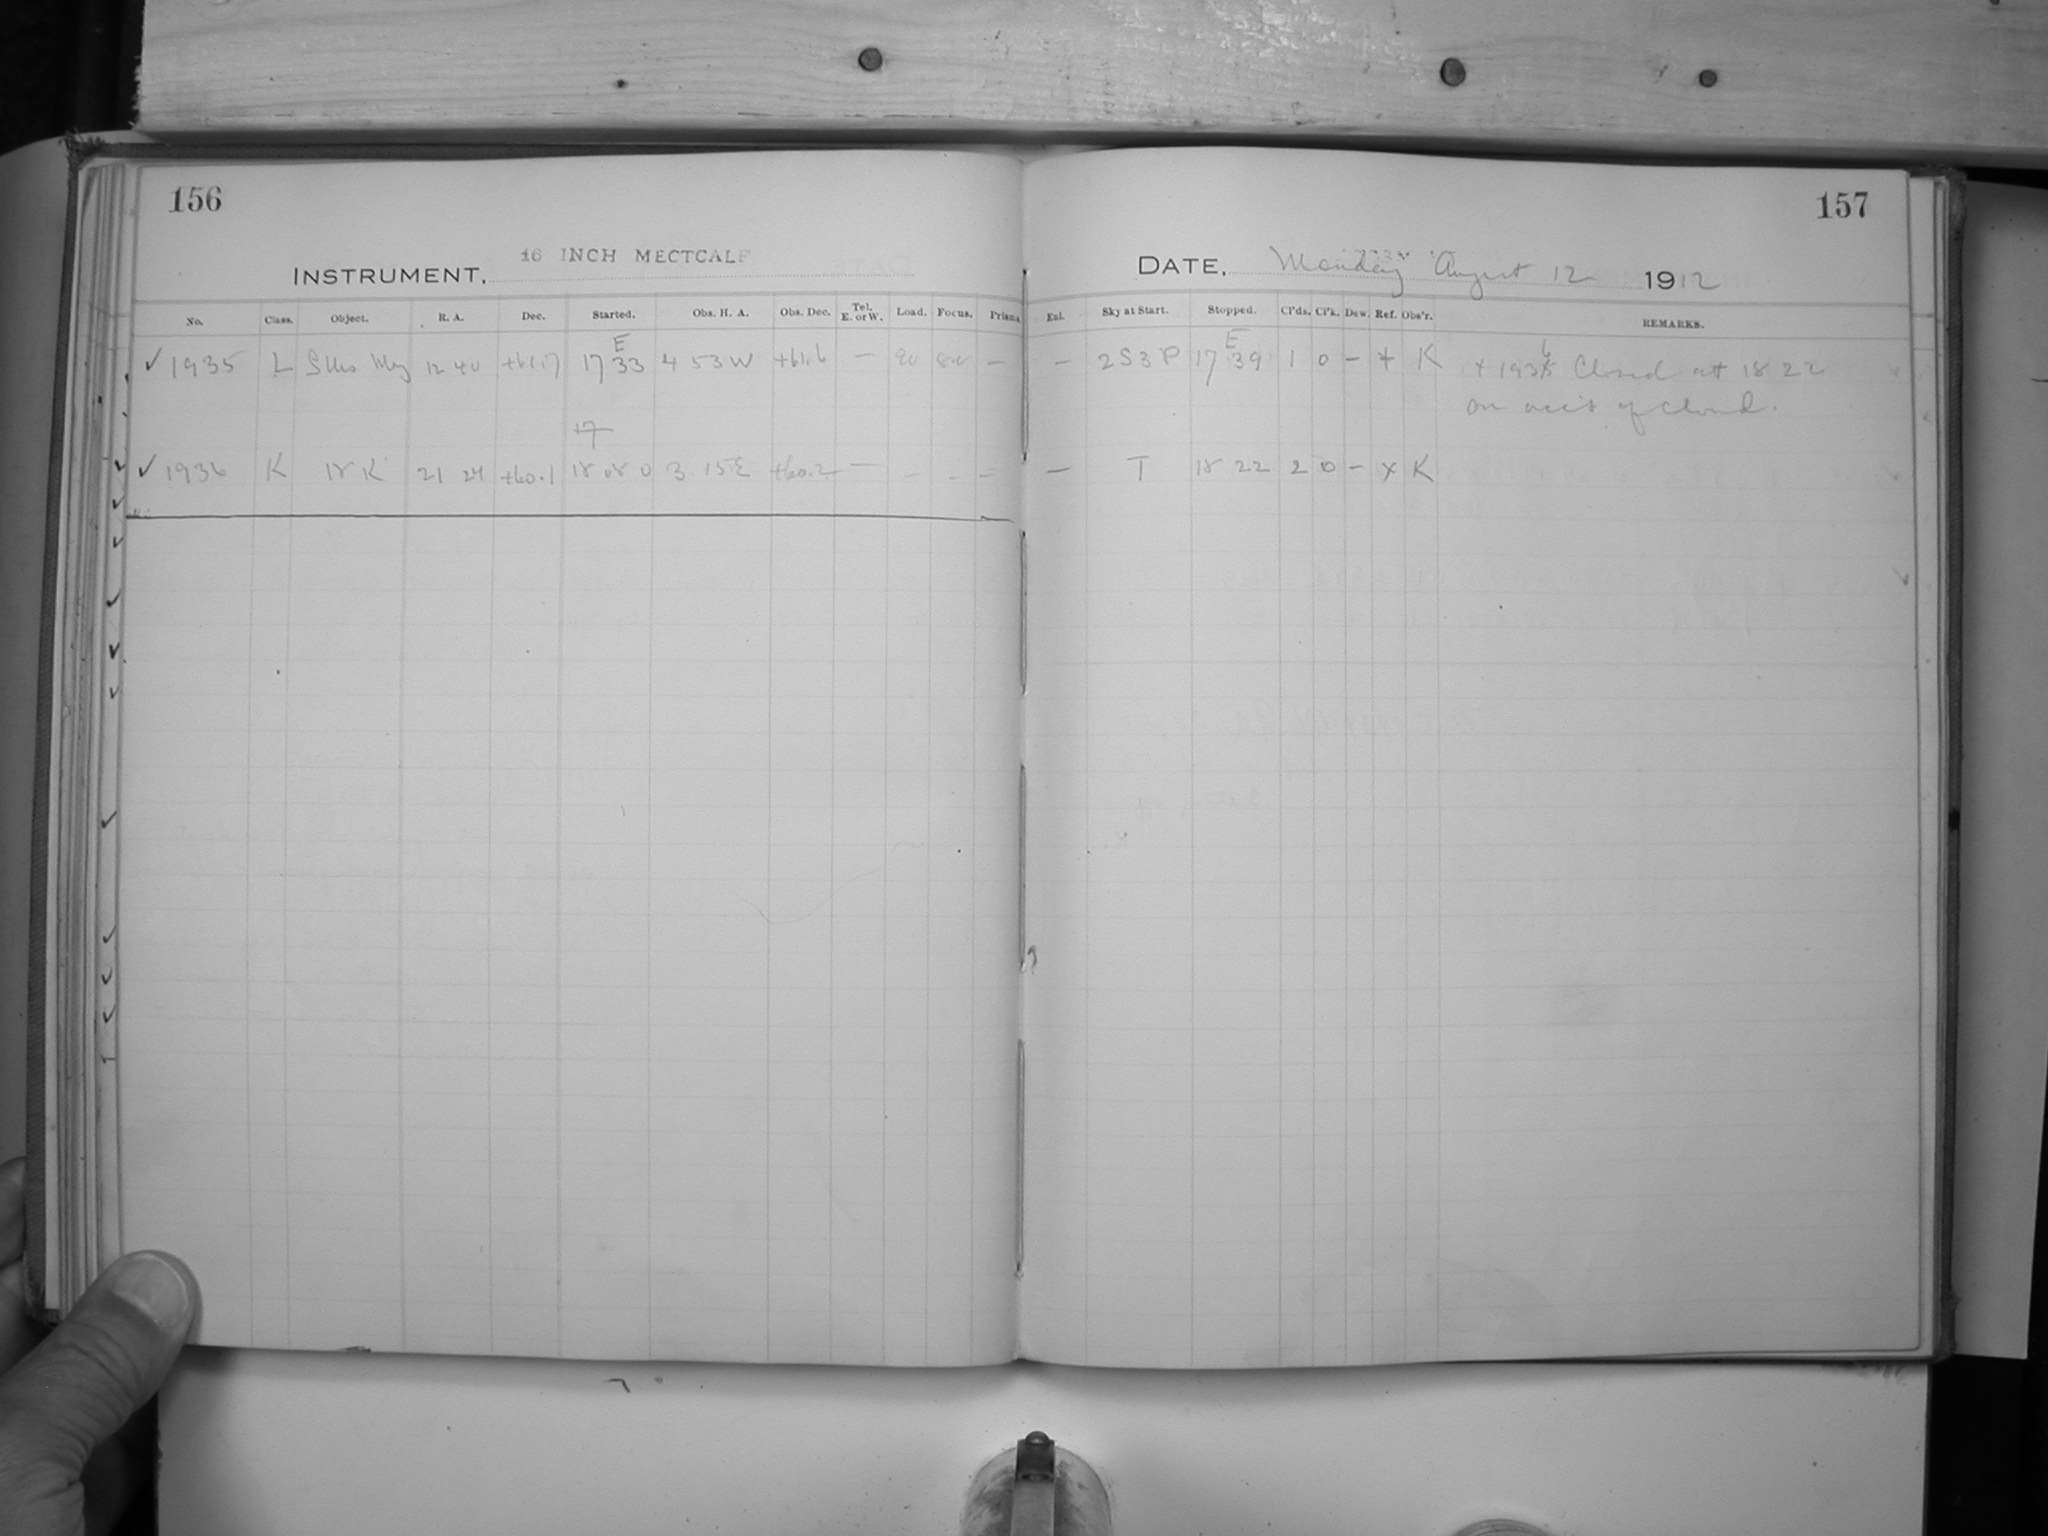 156
157
16 INCH MECTCALF
INSTRUMENT,
DATE, Monday August 12 1912
No. Class. Object. R. A. Dec. Started. Obs. H. A. Obs. Dec. Tel. E. or W. Load. Focus. Prisms Enl. Sky at Start. Stopped. Cl'ds. Cl'k. Dew. Ref. Obs'r. REMARKS.
E E
✓ 1935 L 12 40 +61.7 17 33 4 53 W +61.6 — 80 8.0 — — 2S3P 17 39 1 0 – + K + 1936 Closed at 18 22
on acc't of cloud.
17
✓ 1936 K 18 K 21 24 +60.1 18 08 0 3 15 E +60.2 — – – – — T 18 22 2 0 – x K